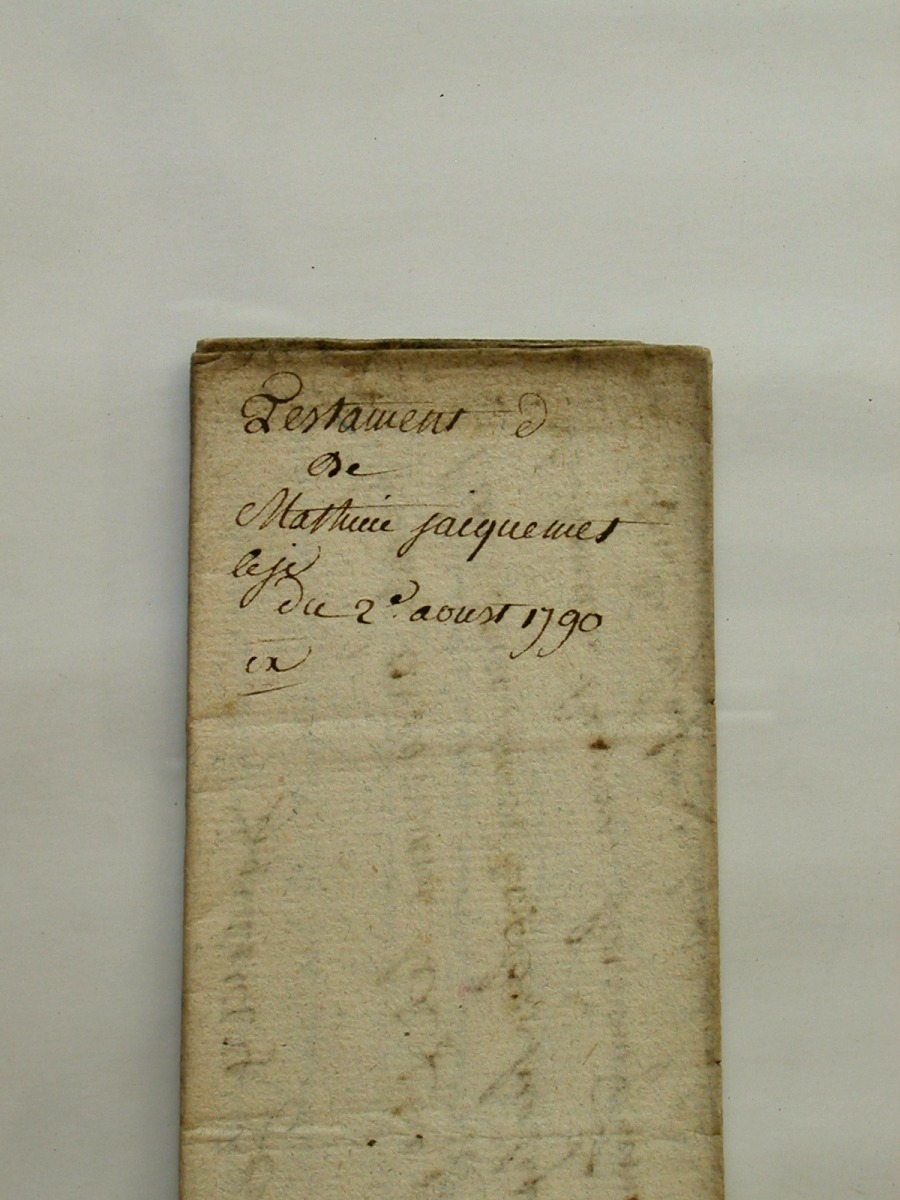 Testament
De
Mathieu jacquemet
du 2e. aoust 1790